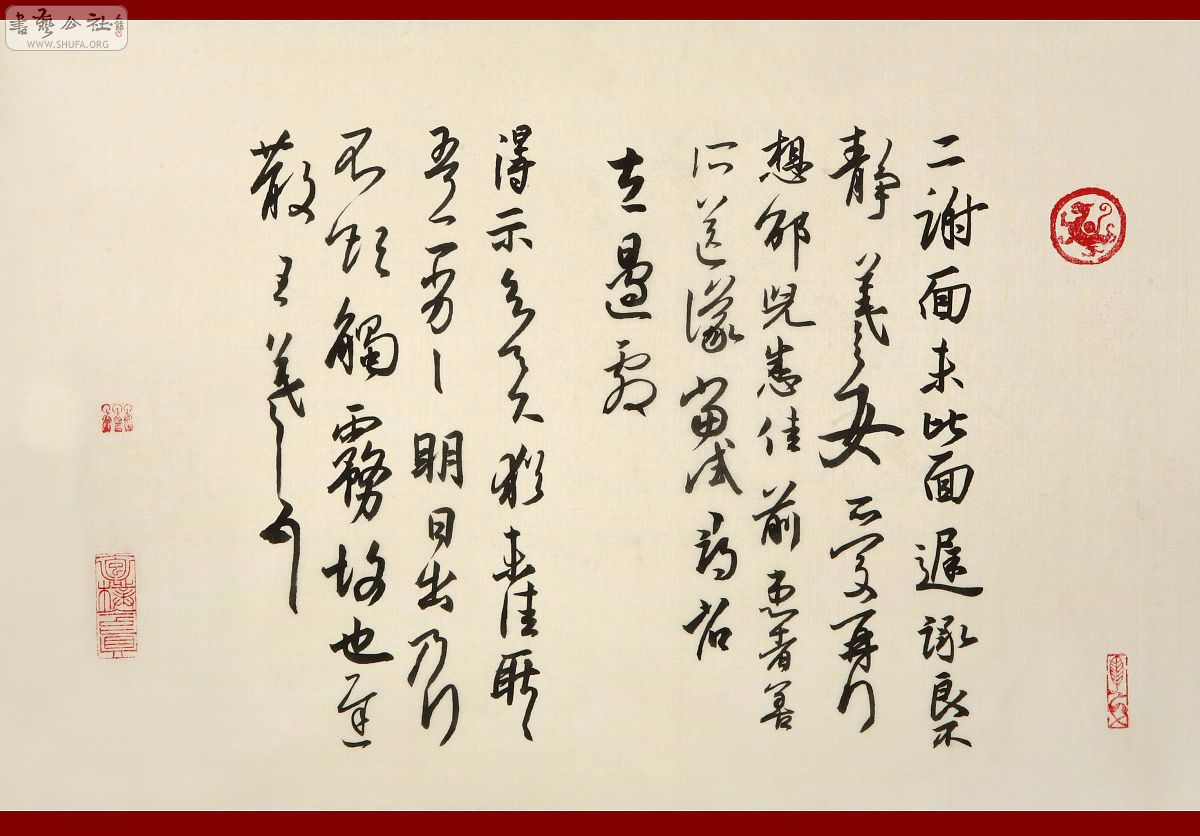 書藝公社
WWW.SHUFA.ORG
二謝面未比面遲詠良不
靜羲之女愛再拜
想邰兒悉佳前患者善
所送議當試尋省
左邊劇
得示知足下猶未佳耿耿
吾亦劣劣明日出乃行
不欲觸霧故也遲
散王羲之頓首